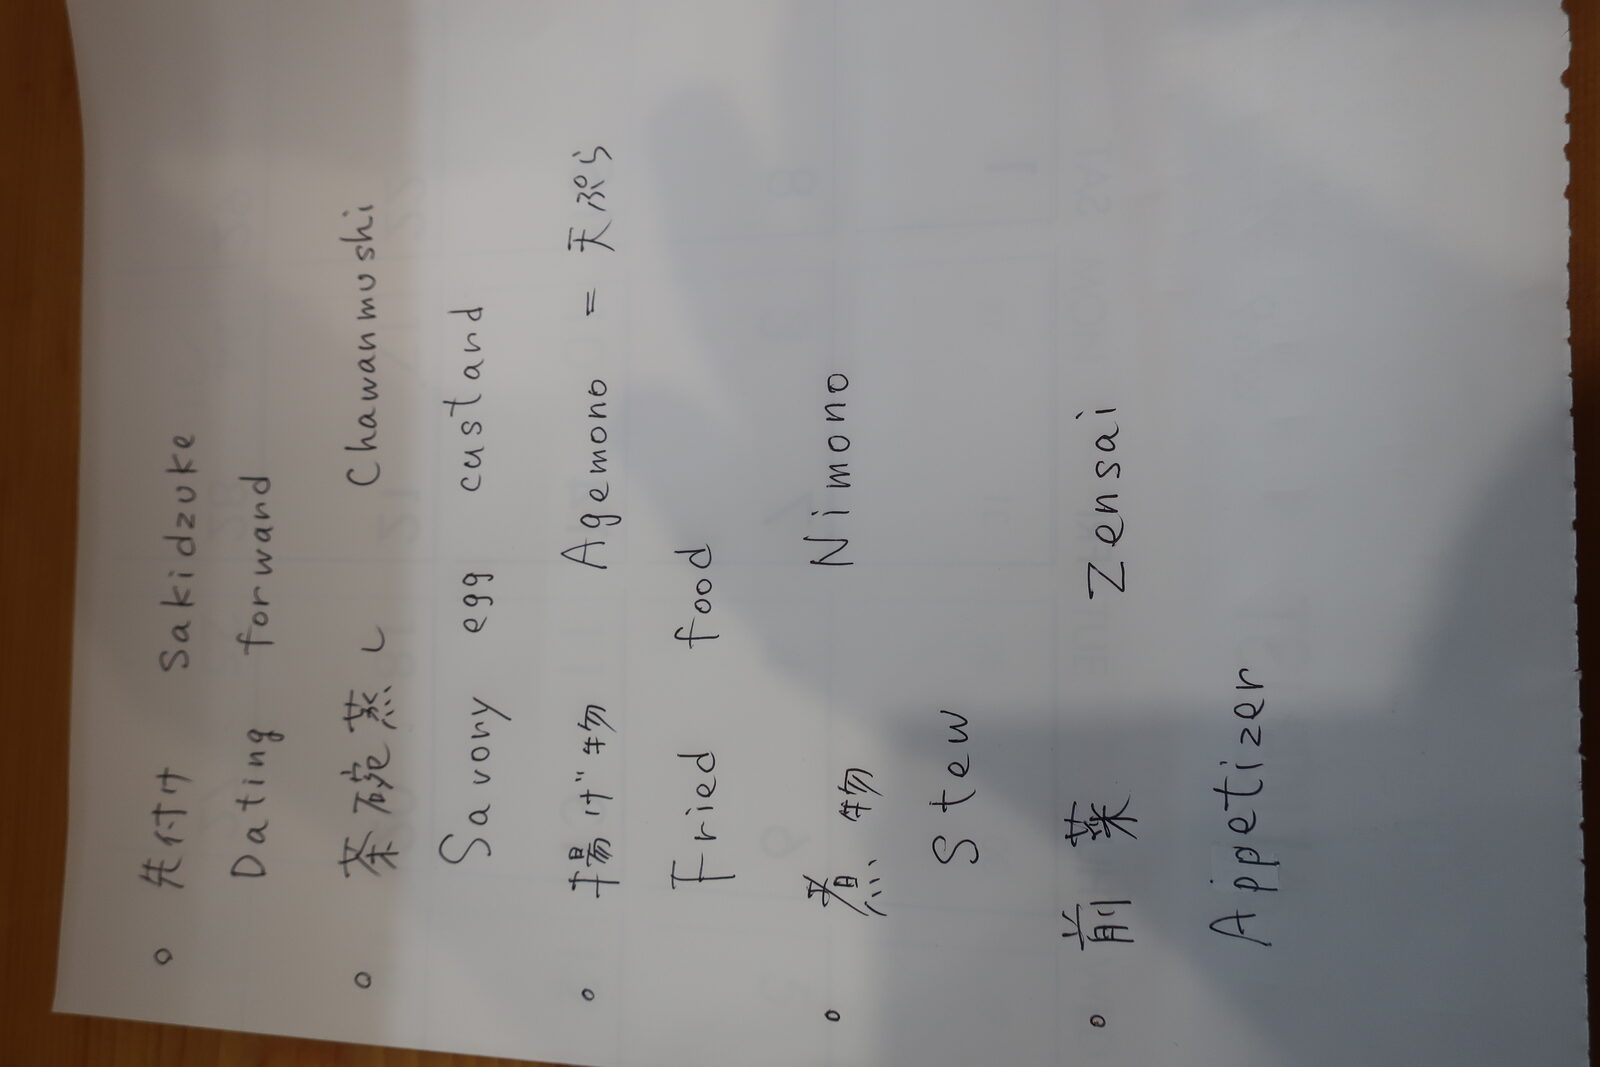 。先付け Sakidzuke
Dating forward
。茶碗蒸し Chawanmushi
Savony egg custand
。揚げ物 Agemono = 天ぷら
Fried food
。煮物 Nimono
Stew
。前菜 Zensai
Appetizer